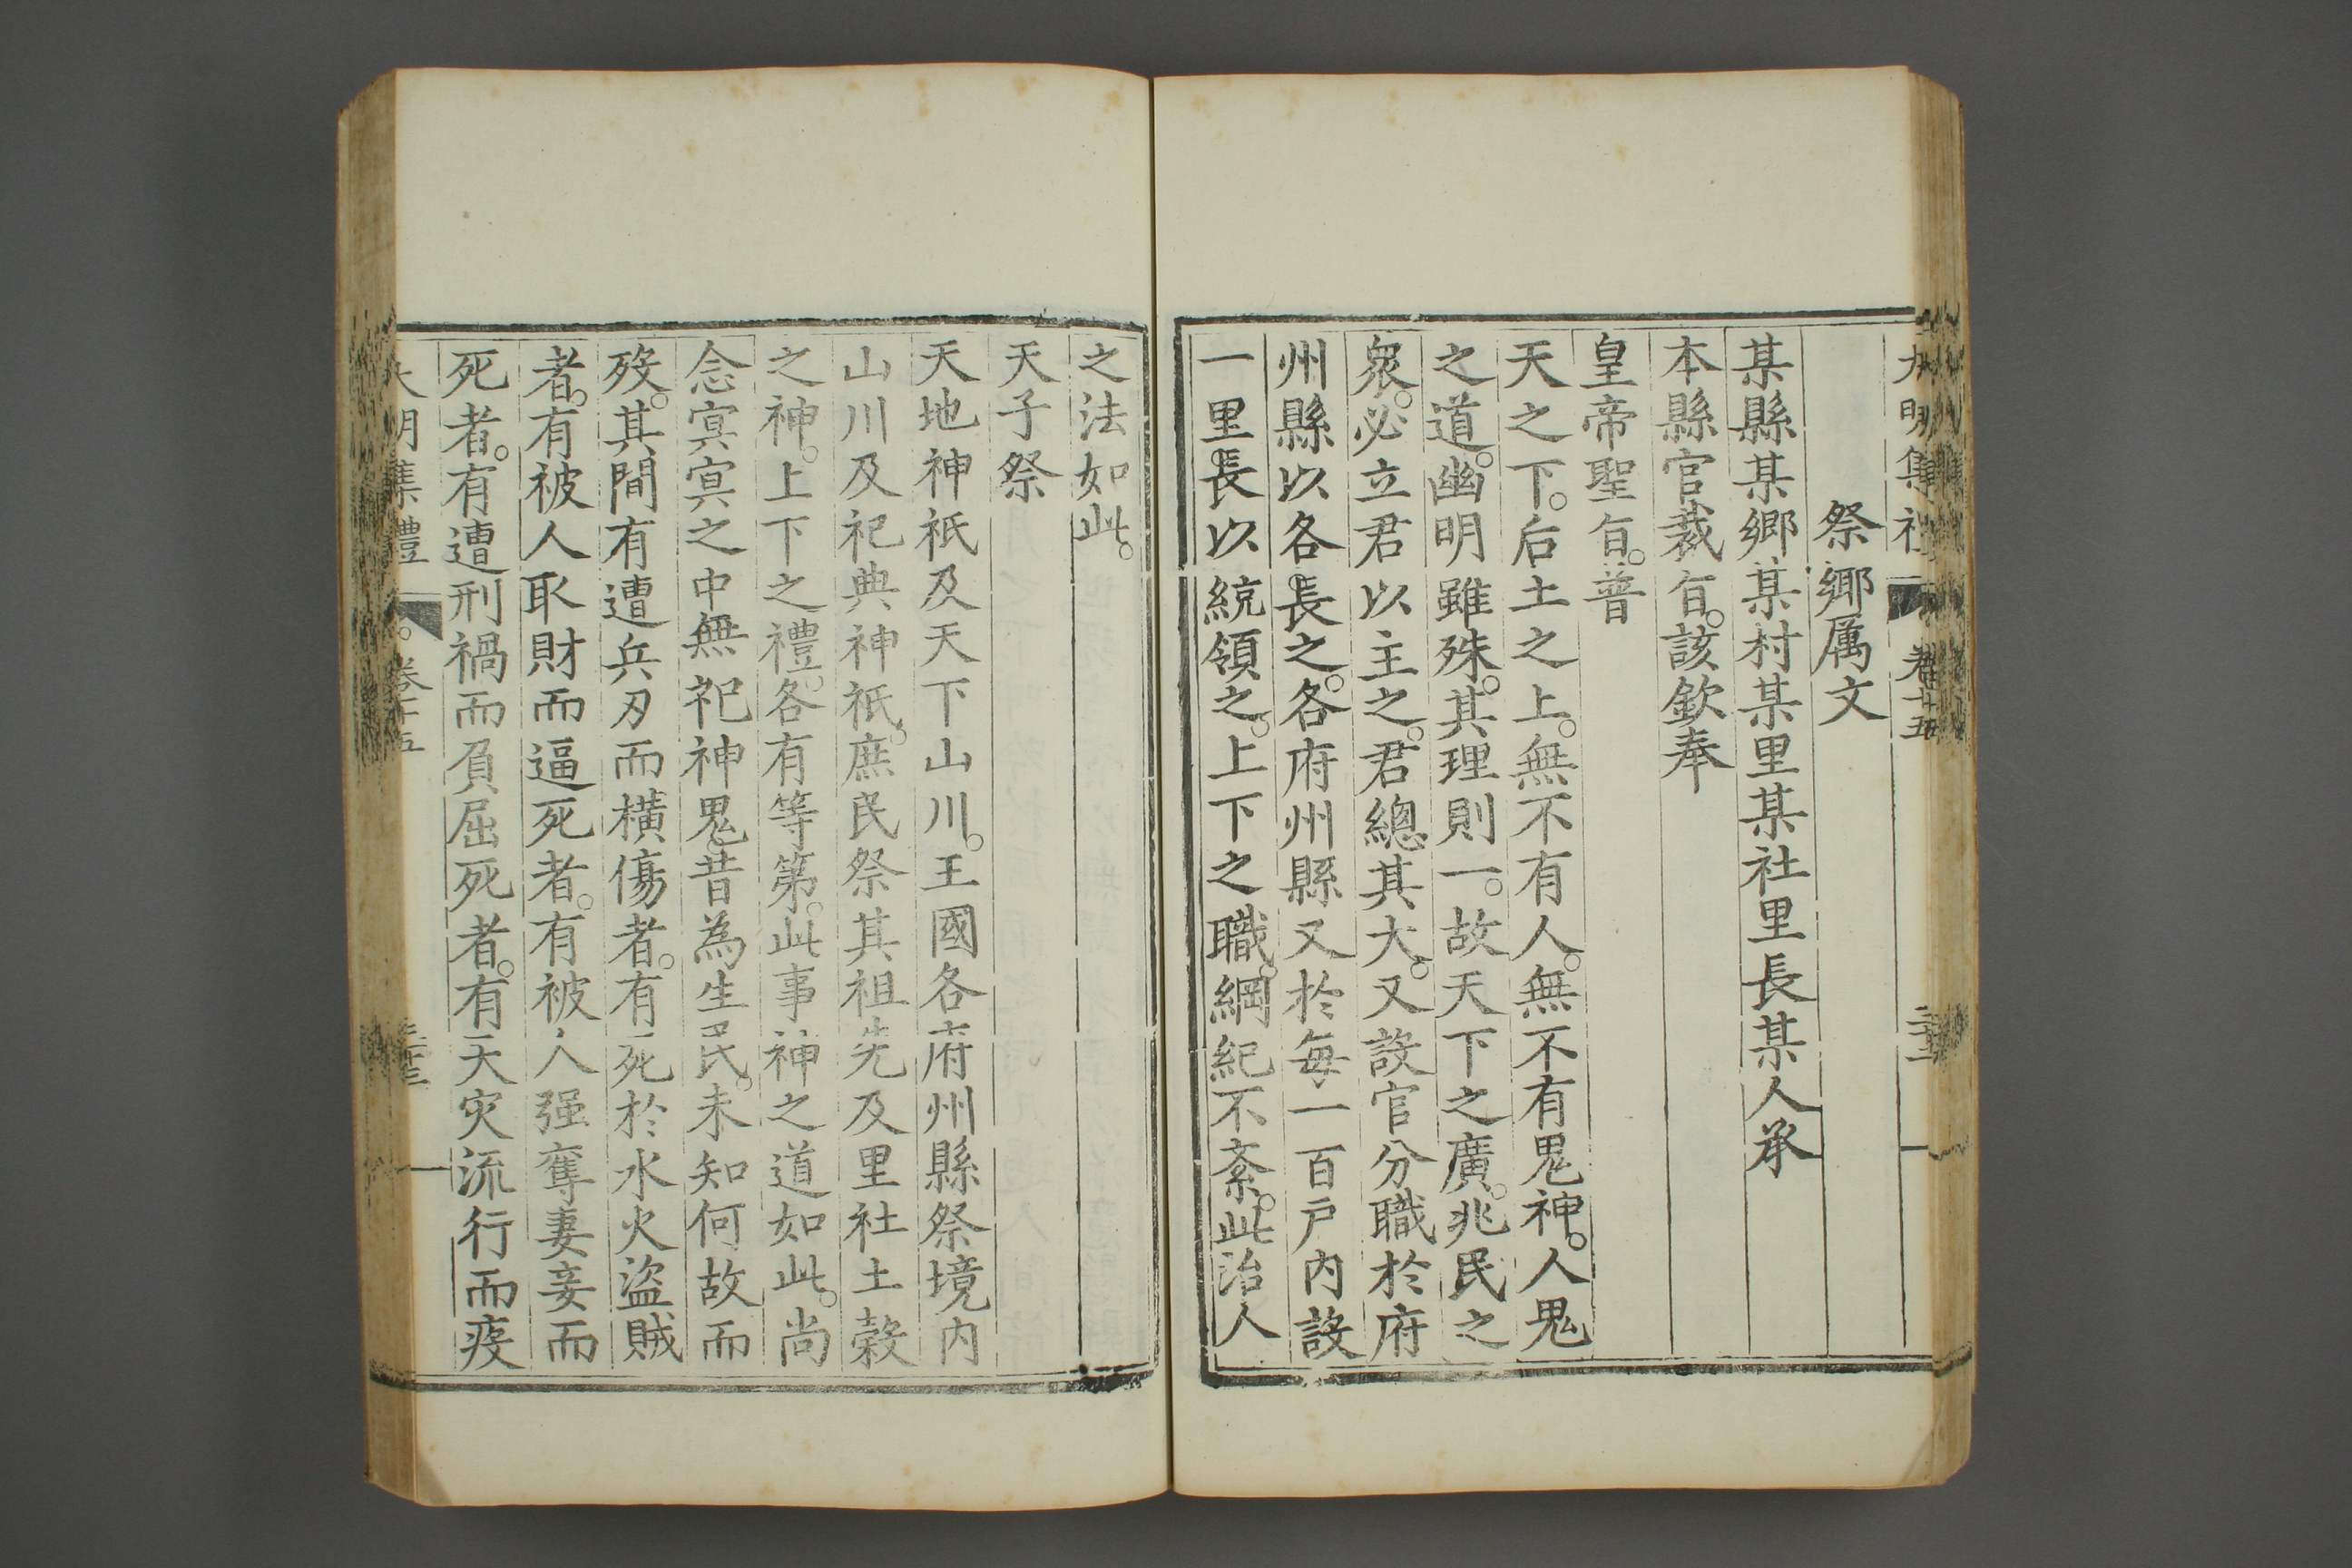 大明集禮 卷十五 三十二
祭鄉厲文
某縣某鄉某村某里某社里長某人承
本縣官裁旨。該欽奉
皇帝聖旨。普
天之下。后土之上。無不有人。無不有鬼神。人鬼
之道。幽明雖殊。其理則一。故天下之廣。兆民之
衆。必立君以主之。君總其大。又設官分職於府
州縣以各長之。各府州縣又於每一百戸内設
一里長以統領之。上下之職。綱紀不紊。此治人
之法如此。
天子祭
天地神祇及天下山川。王國各府州縣祭境内
山川及祀典神祇。庶民祭其祖先及里社土穀
之神。上下之禮。各有等第。此事神之道如此。尚
念冥冥之中無祀神鬼。昔為生民。未知何故而
歿。其間有遭兵刃而横傷者。有死於水火盜賊
者。有被人取財而逼死者。有被人强奪妻妾而
死者。有遭刑禍而負屈死者。有天灾流行而疫
大明集禮 卷十五 三十三